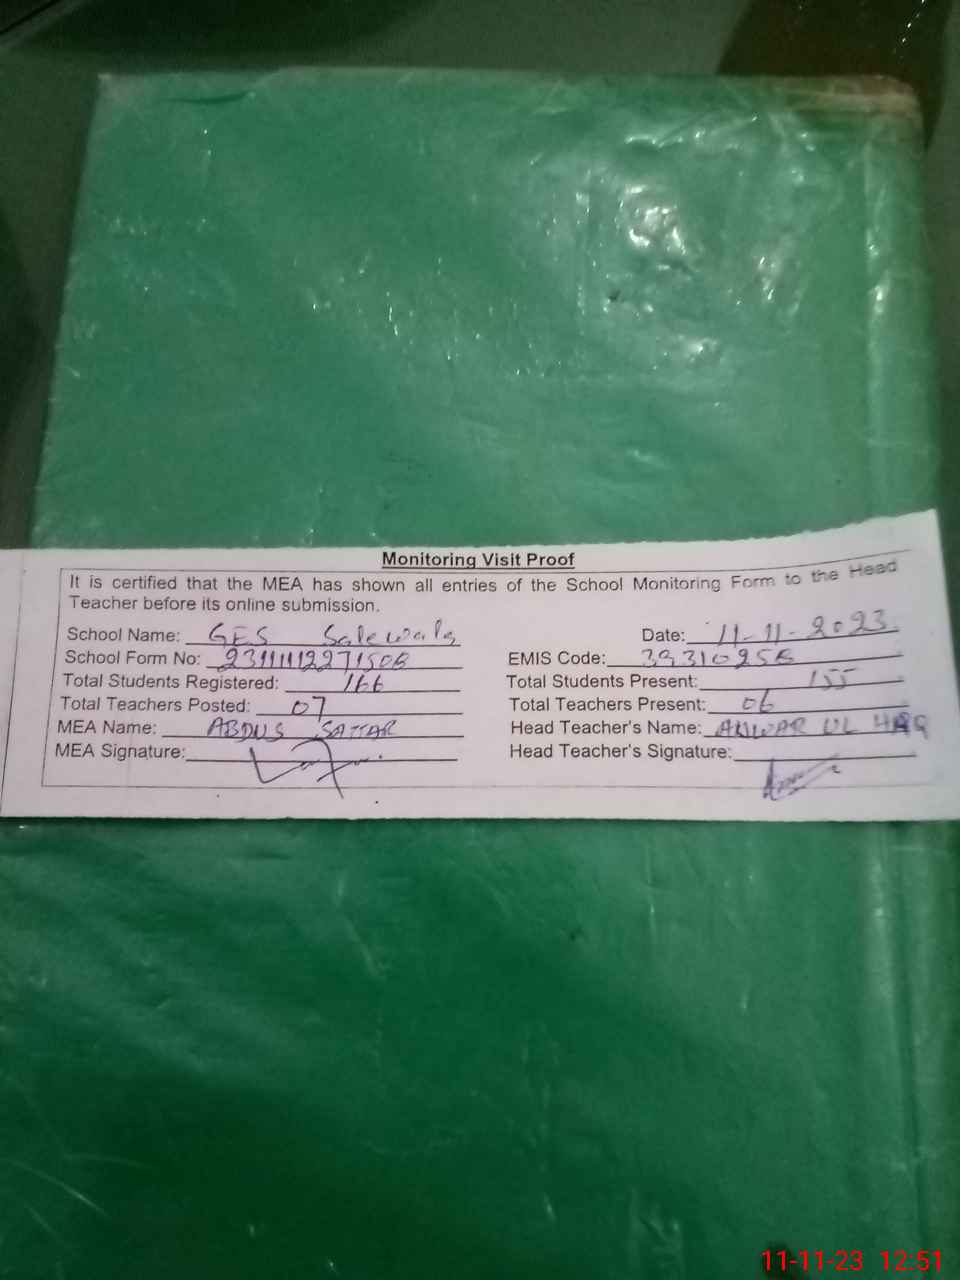 Monitoring Visit Proof
It is certified that the MEA has shown all entries of the School Monitoring Form to the Head
Teacher before its online submission.
School Name: GES Salewala Date: 11-11-2023
School Form No: EMIS Code:
Total Students Registered: 166 Total Students Present: 155
Total Teachers Posted: 07 Total Teachers Present: 06
MEA Name: ABDUS SATTAR Head Teacher's Name: ANWAR UL HAQ
MEA Signature: Head Teacher's Signature:
11-11-23 12:51